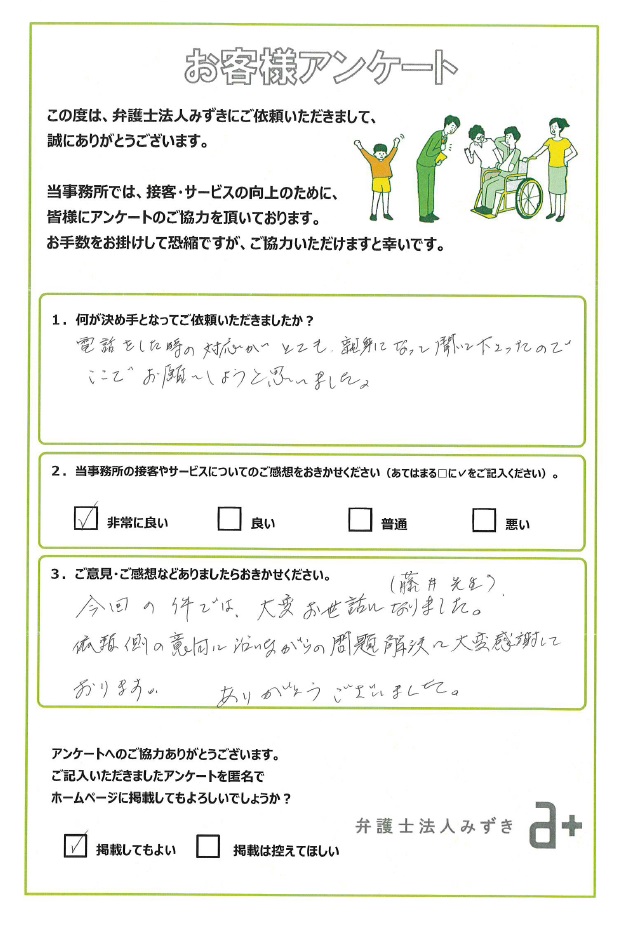 お客様アンケート
この度は、弁護士法人みずきにご依頼いただきまして、
誠にありがとうございます。
当事務所では、接客・サービスの向上のために、
皆様にアンケートのご協力を頂いております。
お手数をお掛けして恐縮ですが、ご協力いただけますと幸いです。
1．何が決め手となってご依頼いただきましたか？
電話をした時の対応がとても、親身になって聞いて下さったので
ここでお願いしようと思いました。
2．当事務所の接客やサービスについてのご感想をおきかせください（あてはまる□に✓をご記入ください）。
✓ 非常に良い □ 良い □ 普通 □ 悪い
3．ご意見・ご感想などありましたらおきかせください。
(藤井先生)
今回の件では、大変お世話になりました。
依頼側の意向に沿いながらの問題解決に大変感謝して
おります。 ありがとうございました。
アンケートへのご協力ありがとうございます。
ご記入いただきましたアンケートを匿名で
ホームページに掲載してもよろしいでしょうか？
✓ 掲載してもよい □ 掲載は控えてほしい
弁護士法人みずき a+